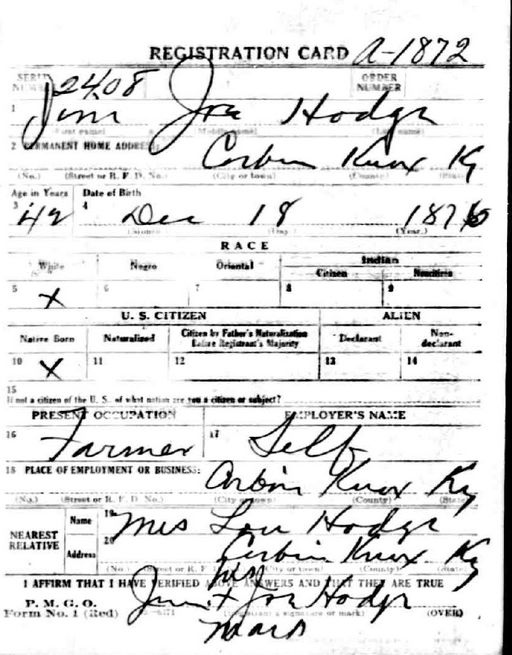 REGISTRATION CARD A-1872
SERIAL NUMBER 2408 ORDER NUMBER
1 Jim Joe Hodge
(First name) (Middle name) (Last name)
2 PERMANENT HOME ADDRESS:
Corbin Knox Ky
(No.) (Street or R. F. D. No.) (City or town) (County) (State)
Age in Years Date of Birth
3 42 4 Dec 18 1876
(Month) (Day) (Year.)
RACE
White Negro Oriental Indian
Citizen Noncitizen
5 X 6 7 8 9
U. S. CITIZEN ALIEN
Native Born Naturalized Citizen by Father's Naturalization Before Registrant's Majority Declarant Non-declarant
10 X 11 12 13 14
15
If not a citizen of the U. S. of what nation are you a citizen or subject?
PRESENT OCCUPATION EMPLOYER'S NAME
16 Farmer 17 Self
18 PLACE OF EMPLOYMENT OR BUSINESS:
Corbin Knox Ky
(No.) (Street or R. F. D. No.) (City or town) (County) (State)
NEAREST RELATIVE Name 19 Mrs Lou Hodge
Address 20 Corbin Knox Ky
(No.) (Street or R. F. D. No.) (City or town) (County) (State)
I AFFIRM THAT I HAVE VERIFIED ABOVE ANSWERS AND THAT THEY ARE TRUE
his
P. M. G. O.
Form No. 1 (Red) Jim + Joe Hodge (Registrant's signature or mark) (OVER)
mark